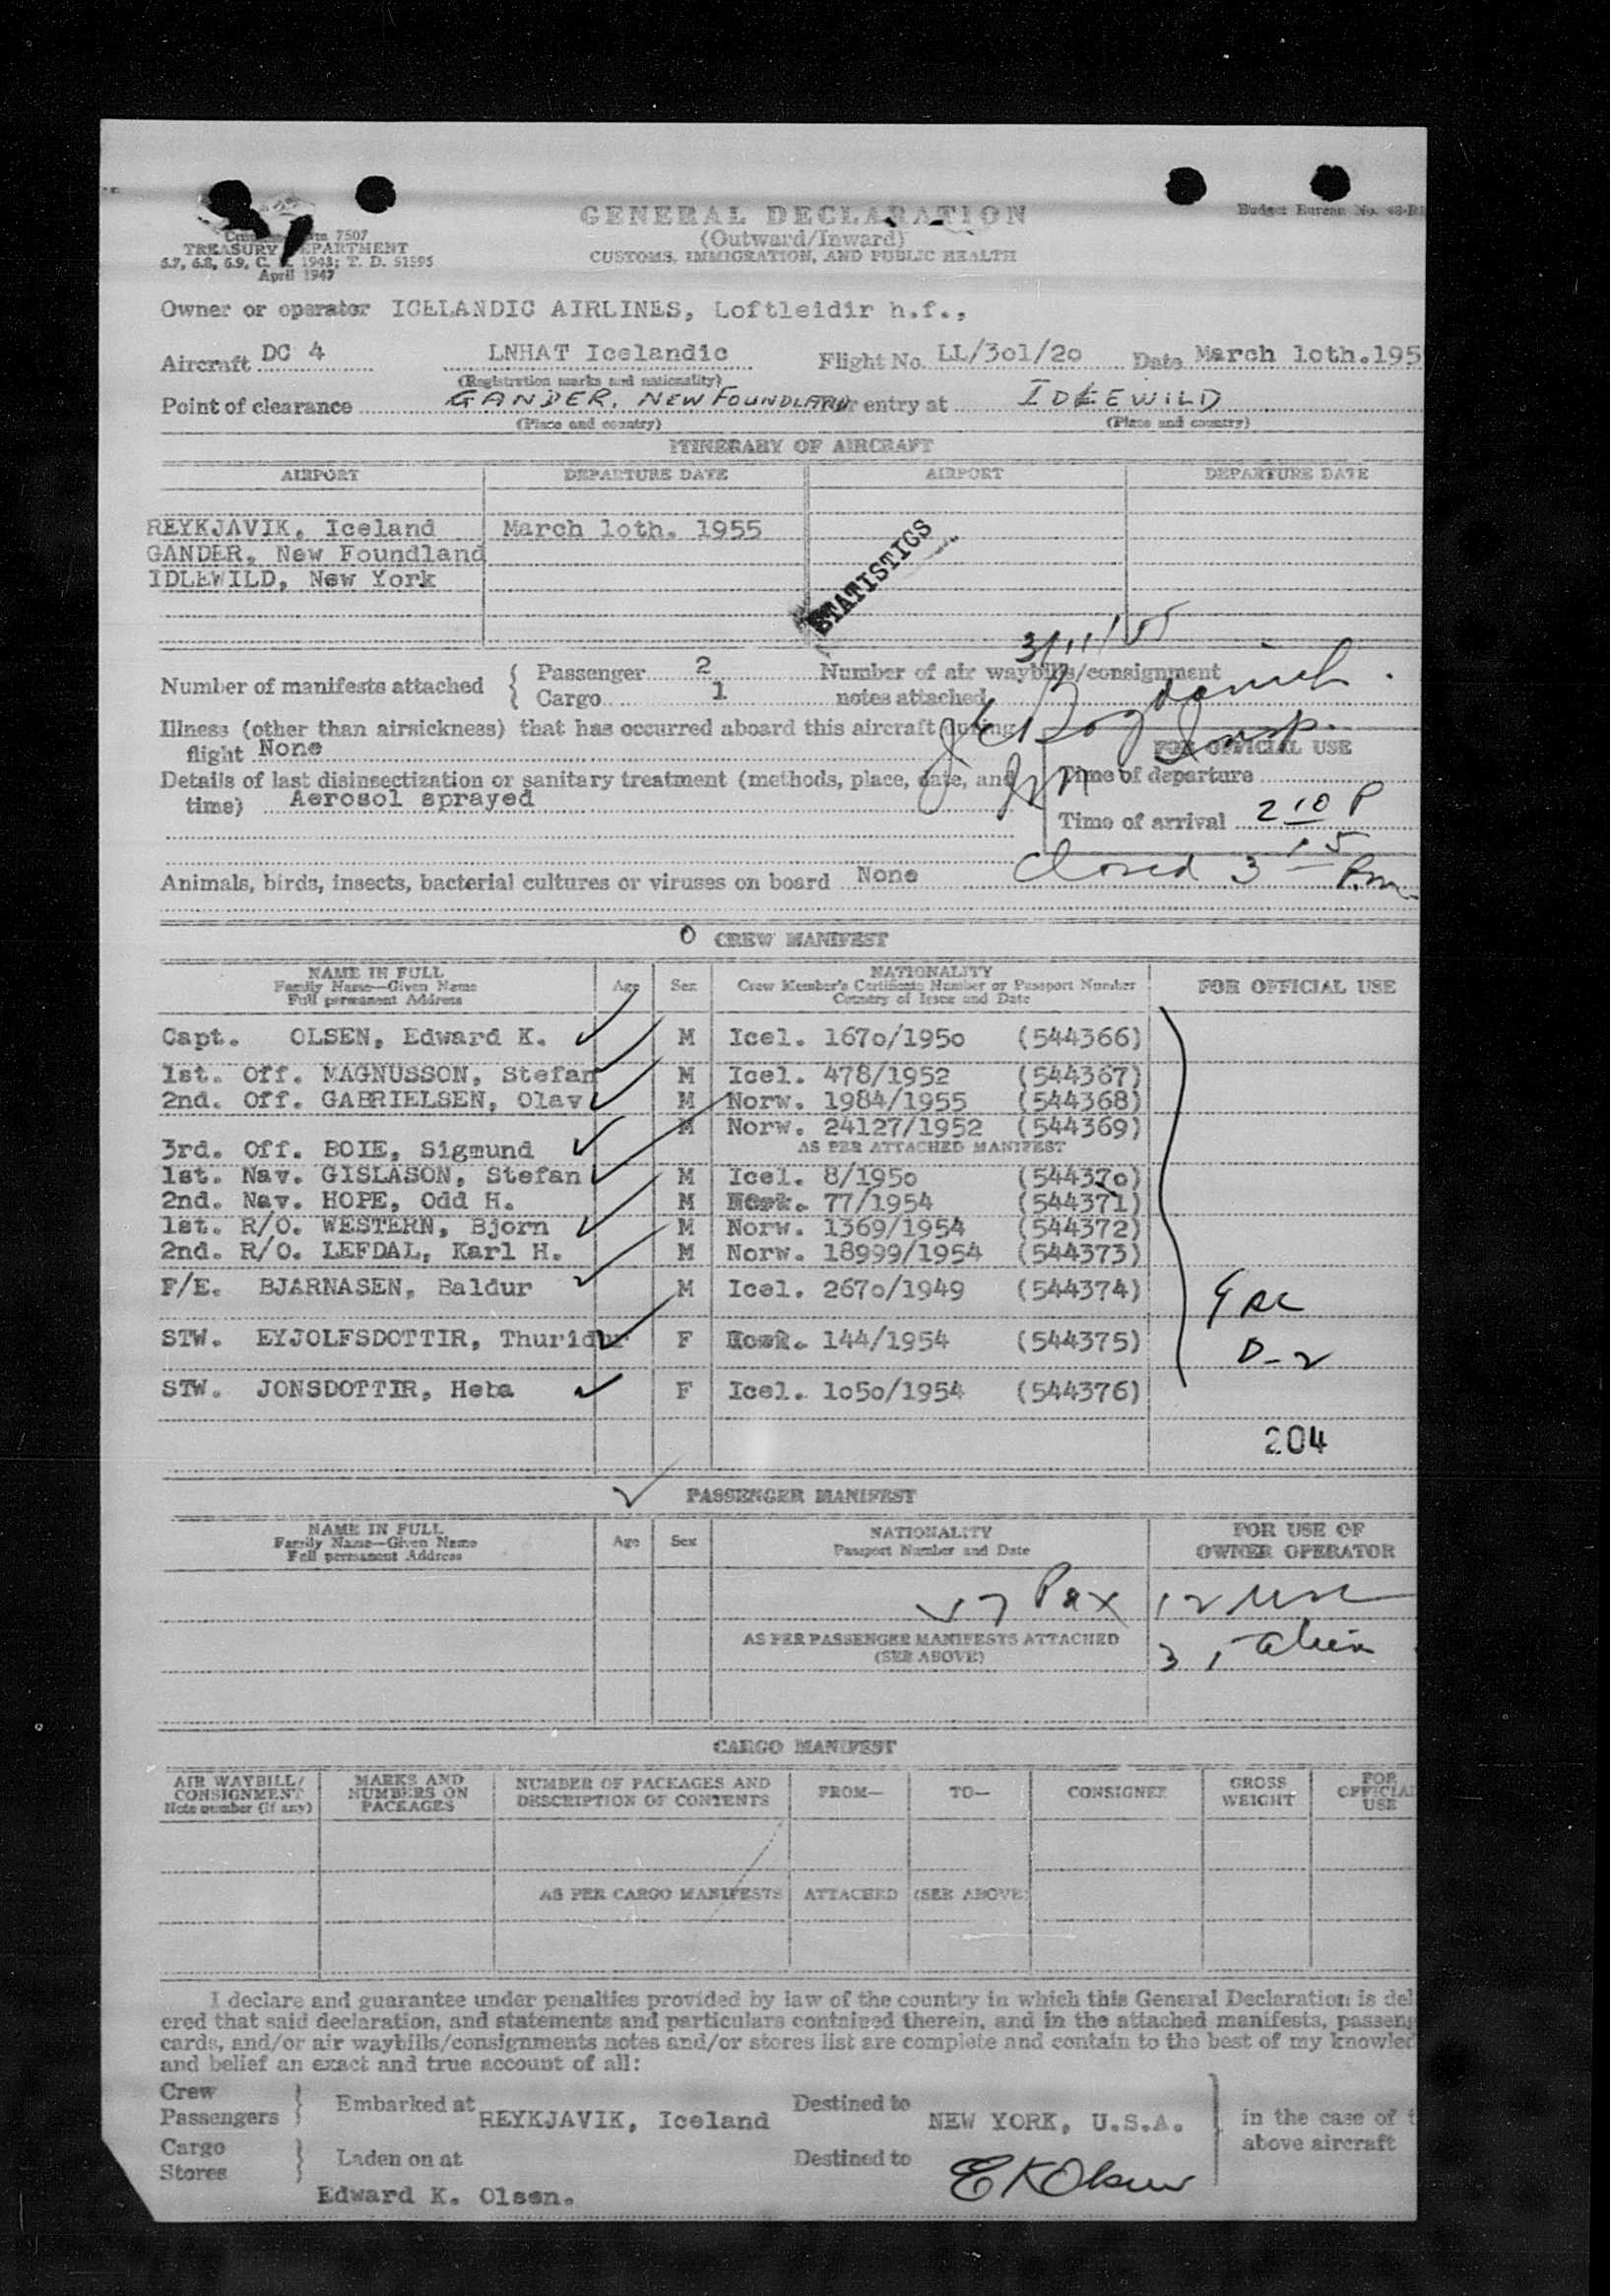 GENERAL DECLARATION
(Outward/Inward)
CUSTOMS, IMMIGRATION, AND PUBLIC HEALTH
Budget Bureau No.
7507
TREASURY DEPARTMENT
6.7, 6.8, 6.9, C. 1943; T. D. 51595
April 1947
Owner or operator ICELANDIC AIRLINES, Loftleidir h.f.,
Aircraft DC 4 LNHAT Icelandic Flight No. LL/3o1/2o Date March 1oth.195
(Registration marks and nationality)
Point of clearance GANDER, NEW FOUNDLAND For entry at IDLEWILD
(Place and country) (Place and country)
ITINERARY OF AIRCRAFT
AIRPORT DEPARTURE DATE AIRPORT DEPARTURE DATE
REYKJAVIK, Iceland March 1oth. 1955
GANDER, New Foundland
IDLEWILD, New York
STATISTICS
3/11/55
Number of manifests attached { Passenger 2 Number of air waybills/consignment
Cargo 1 notes attached
Illness (other than airsickness) that has occurred aboard this aircraft during
flight None
FOR OFFICIAL USE
Details of last disinsectization or sanitary treatment (methods, place, date, and
time) Aerosol sprayed
Time of departure
Time of arrival 2 10 P
Closed 3 15 P.m
Animals, birds, insects, bacterial cultures or viruses on board None
0 CREW MANIFEST
NAME IN FULL
Family Name—Given Name
Full permanent Address
Age Sex
NATIONALITY
Crew Member's Certificate Number or Passport Number
Country of Issue and Date
FOR OFFICIAL USE
Capt. OLSEN, Edward K. M Icel. 167o/195o (544366)
1st. Off. MAGNUSSON, Stefan M Icel. 478/1952 (544367)
2nd. Off. GABRIELSEN, Olav M Norw. 1984/1955 (544368)
3rd. Off. BOIE, Sigmund M Norw. 24127/1952 (544369)
AS PER ATTACHED MANIFEST
1st. Nav. GISLASON, Stefan M Icel. 8/195o (54437o)
2nd. Nav. HOPE, Odd H. M 77/1954 (544371)
1st. R/O. WESTERN, Bjorn M Norw. 1369/1954 (544372)
2nd. R/O. LEFDAL, Karl H. M Norw. 18999/1954 (544373)
F/E. BJARNASEN, Baldur M Icel. 267o/1949 (544374)
STW. EYJOLFSDOTTIR, Thuridur F 144/1954 (544375)
D-2
STW. JONSDOTTIR, Heba F Icel. 1o5o/1954 (544376)
204
PASSENGER MANIFEST
NAME IN FULL
Family Name—Given Name
Full permanent Address
Age Sex
NATIONALITY
Passport Number and Date
FOR USE OF
OWNER OPERATOR
Pax 12
AS PER PASSENGER MANIFESTS ATTACHED
(SEE ABOVE)
Alien
CARGO MANIFEST
AIR WAYBILL/
CONSIGNMENT
Note number (if any)
MARKS AND
NUMBERS ON
PACKAGES
NUMBER OF PACKAGES AND
DESCRIPTION OF CONTENTS
FROM— TO— CONSIGNEE
GROSS
WEIGHT
FOR
OFFICIAL
USE
AS PER CARGO MANIFESTS ATTACHED (SEE ABOVE)
I declare and guarantee under penalties provided by law of the country in which this General Declaration is del
ered that said declaration, and statements and particulars contained therein, and in the attached manifests, passeng
cards, and/or air waybills/consignments notes and/or stores list are complete and contain to the best of my knowled
and belief an exact and true account of all:
Crew
Passengers } Embarked at REYKJAVIK, Iceland Destined to NEW YORK, U.S.A.
in the case of t
above aircraft
Cargo
Stores } Laden on at Destined to
Edward K. Olsen. E K Olsen